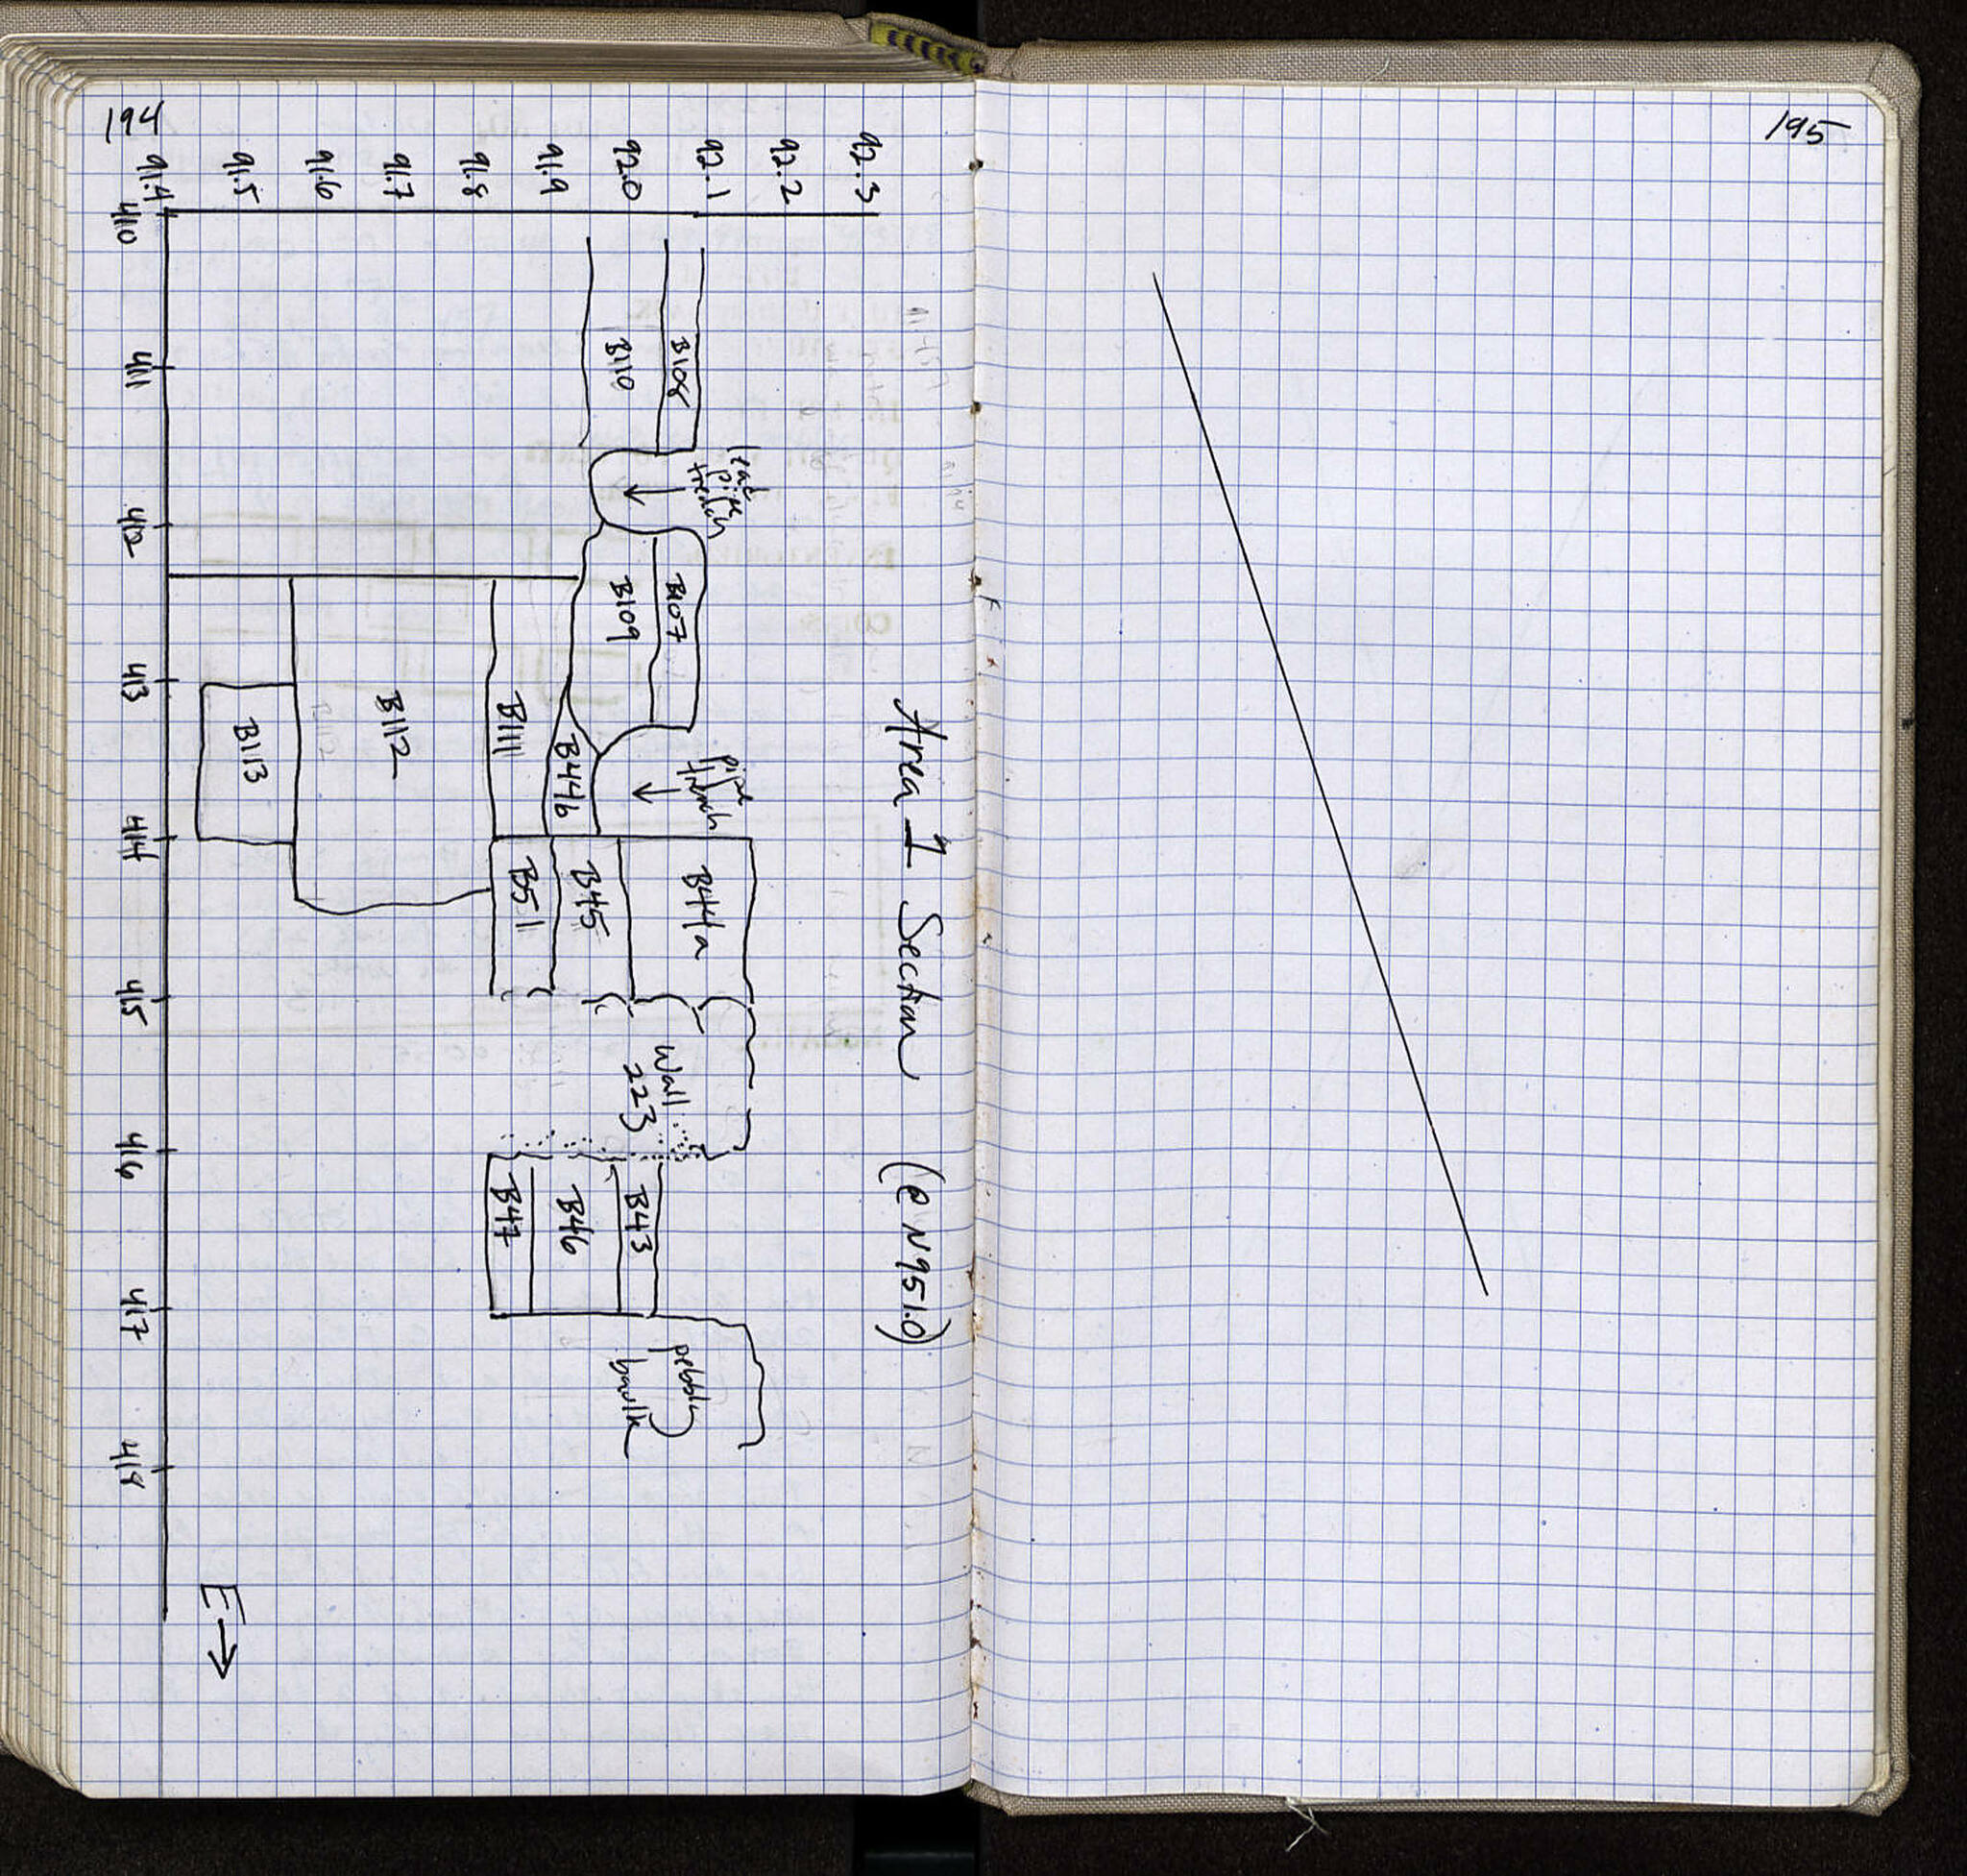 194
195
Area 1 Section (@ N951.0)
92.3
92.2
92.1
92.0
91.9
91.8
91.7
91.6
91.5
91.4
410
411
412
413
414
415
416
417
418
B108
B110
lead
pipe
trench
B107
B109
pipe
trench
B111
B446
B112
B113
B44a
B45
B51
Wall
223
B43
B46
B47
pebbly
baulk
E→